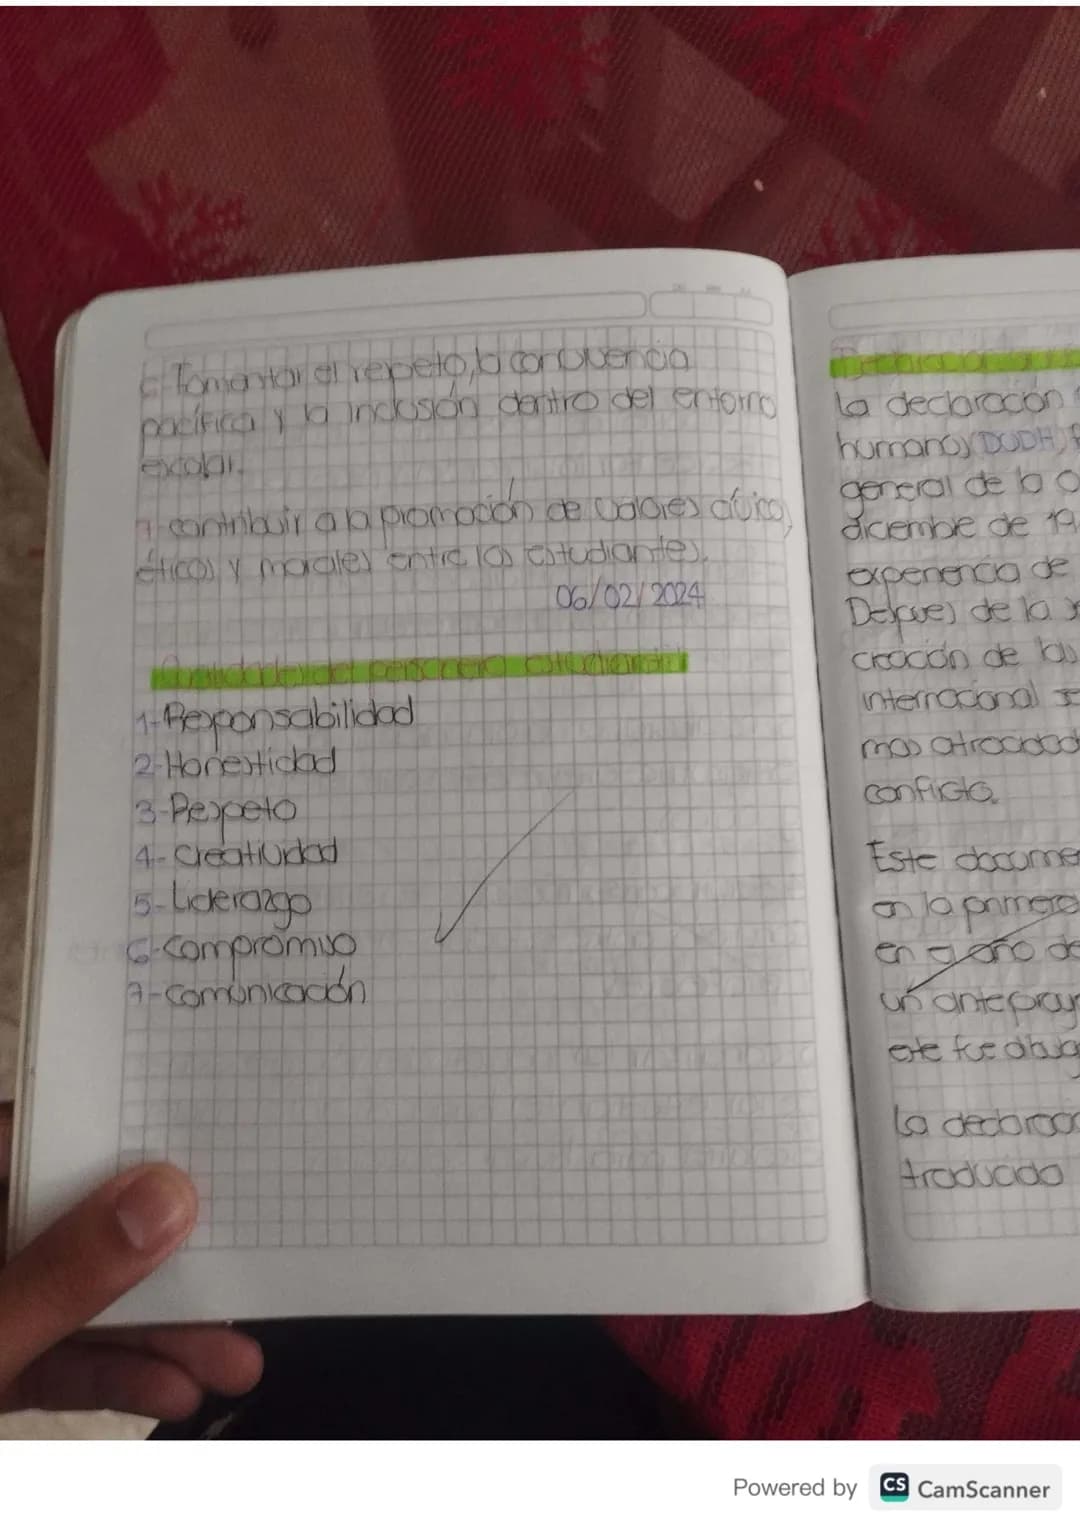 6- Fomentar el repeto, la convivencia
pacífica y la inclusión dentro del entorno
escolar.
7- contribuir a la promoción de valores cívico,
éticos y morales entre los estudiantes.
06/02/2024
Cualidades del personero estudiantil
1-Responsabilidad
2-Honestidad
3-Respeto
4-Creatividad
5-Liderazgo
6-Compromiso
7-Comunicación
La declaración
humanos (DUDH) f
general de la O
dicembre de 19
experiencia de
Despues de la
creación de las
internacional se
mas atrocidad
conflicto.
Este documen
en la primera
en el año de
un anteproy
este fue dibuja
La declarac
traducido
Powered by CS CamScanner